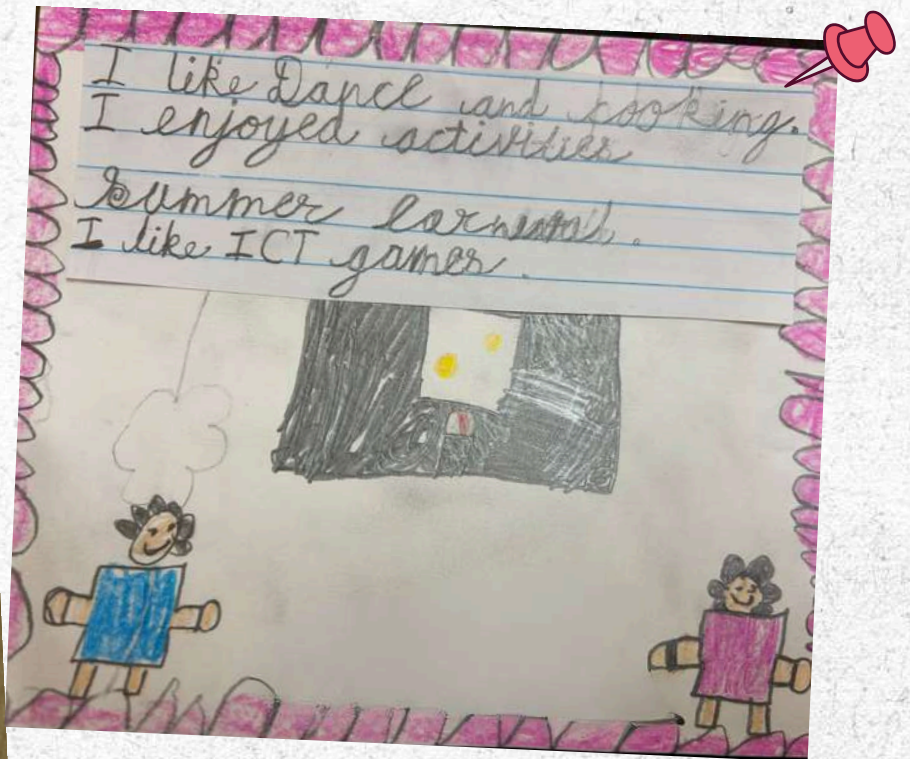 I like Dance and cooking.
I enjoyed activities
Summer
I like ICT games.